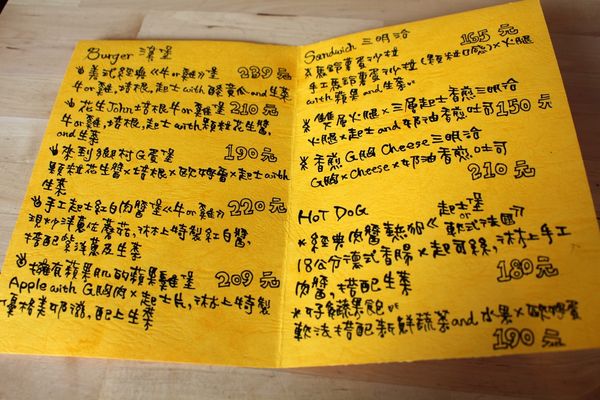 Burger 漢堡
美式經典《牛or雞》堡 239元
牛or雞、培根、起士with酸黃瓜and生菜
花生John培根牛or雞堡 210元
牛or雞、培根、起士with顆粒花生醬,
and生菜
來到鄉村G蛋堡 190元
顆粒花生醬×培根×歐姆蛋×起士with
生菜
手工起士紅白肉醬堡《牛or雞》 220元
現炒洋蔥佐蘑菇,淋上特製紅白醬,
搭配紫洋蔥及生菜
擁有蘋果肌的蘋果雞堡 209元
Apple with G胸肉×起士片,淋上特製
優格美奶滋,配上生菜
Sandwich 三明治 165元
×馬鈴薯蛋沙拉
手工馬鈴薯蛋沙拉(顆粒口感)×火腿
with蘋果and生菜。
×雙層火腿×三層起士香煎三明治
火腿×起士and奶油香煎吐司 150元
×香煎G胸Cheese三明治
G胸×Cheese×奶油香煎吐司
210元
HOT DOG 起士堡
or
×經典肉醬熱狗《軟式法國》
18公分德式香腸×起司絲,淋上手工
肉醬,搭配生菜 180元
×好多蔬果飽
軟法搭配新鮮蔬菜and水果×歐姆蛋
190元